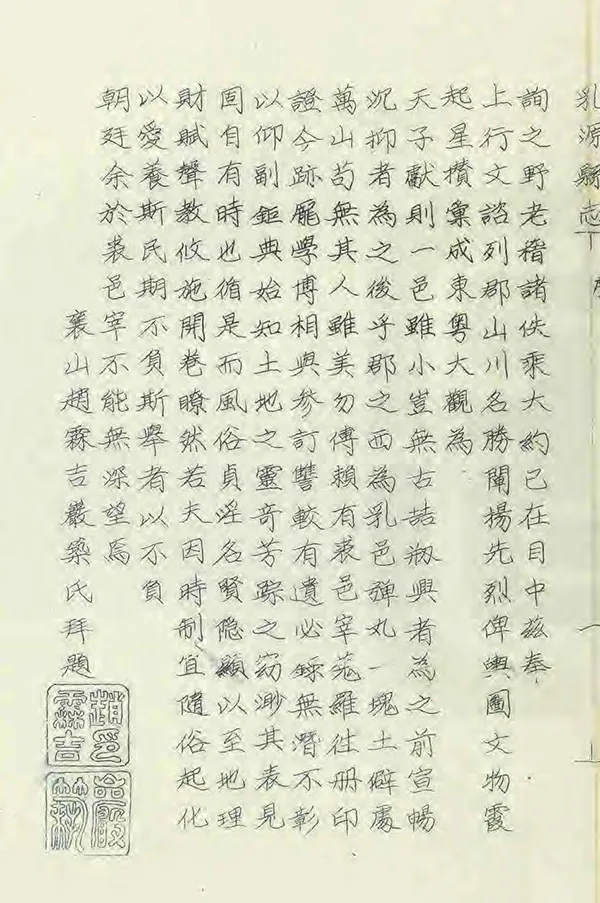 乳源縣志
序
一
詢之野老稽諸佚乘大約已在目中茲奉
上行文諮列郡山川名勝闡揚先烈俾輿圖文物霞
起星攢彙成東粵大觀為
天子獻則一邑雖小豈無古喆衩興者為之前宣暢
沉抑者為之後乎郡之西為乳邑彈丸一塊土僻處
萬山苟無其人雖美勿傳賴有裘邑宰蒐羅往册印
證今跡龐學博相與參訂讐較有遺必錄無潛不彰
以仰副鉅典始知土地之靈奇芳踪之窈渺其表見
固自有時也循是而風俗貞淫名賢隐顯以至地理
財賦聲教攸施開卷瞭然若夫因時制宜隨俗起化
以愛養斯民期不負斯舉者以不負
朝廷余於裘邑宰不能無深望焉
襄山趙霖吉嚴築氏拜題
趙印霖吉